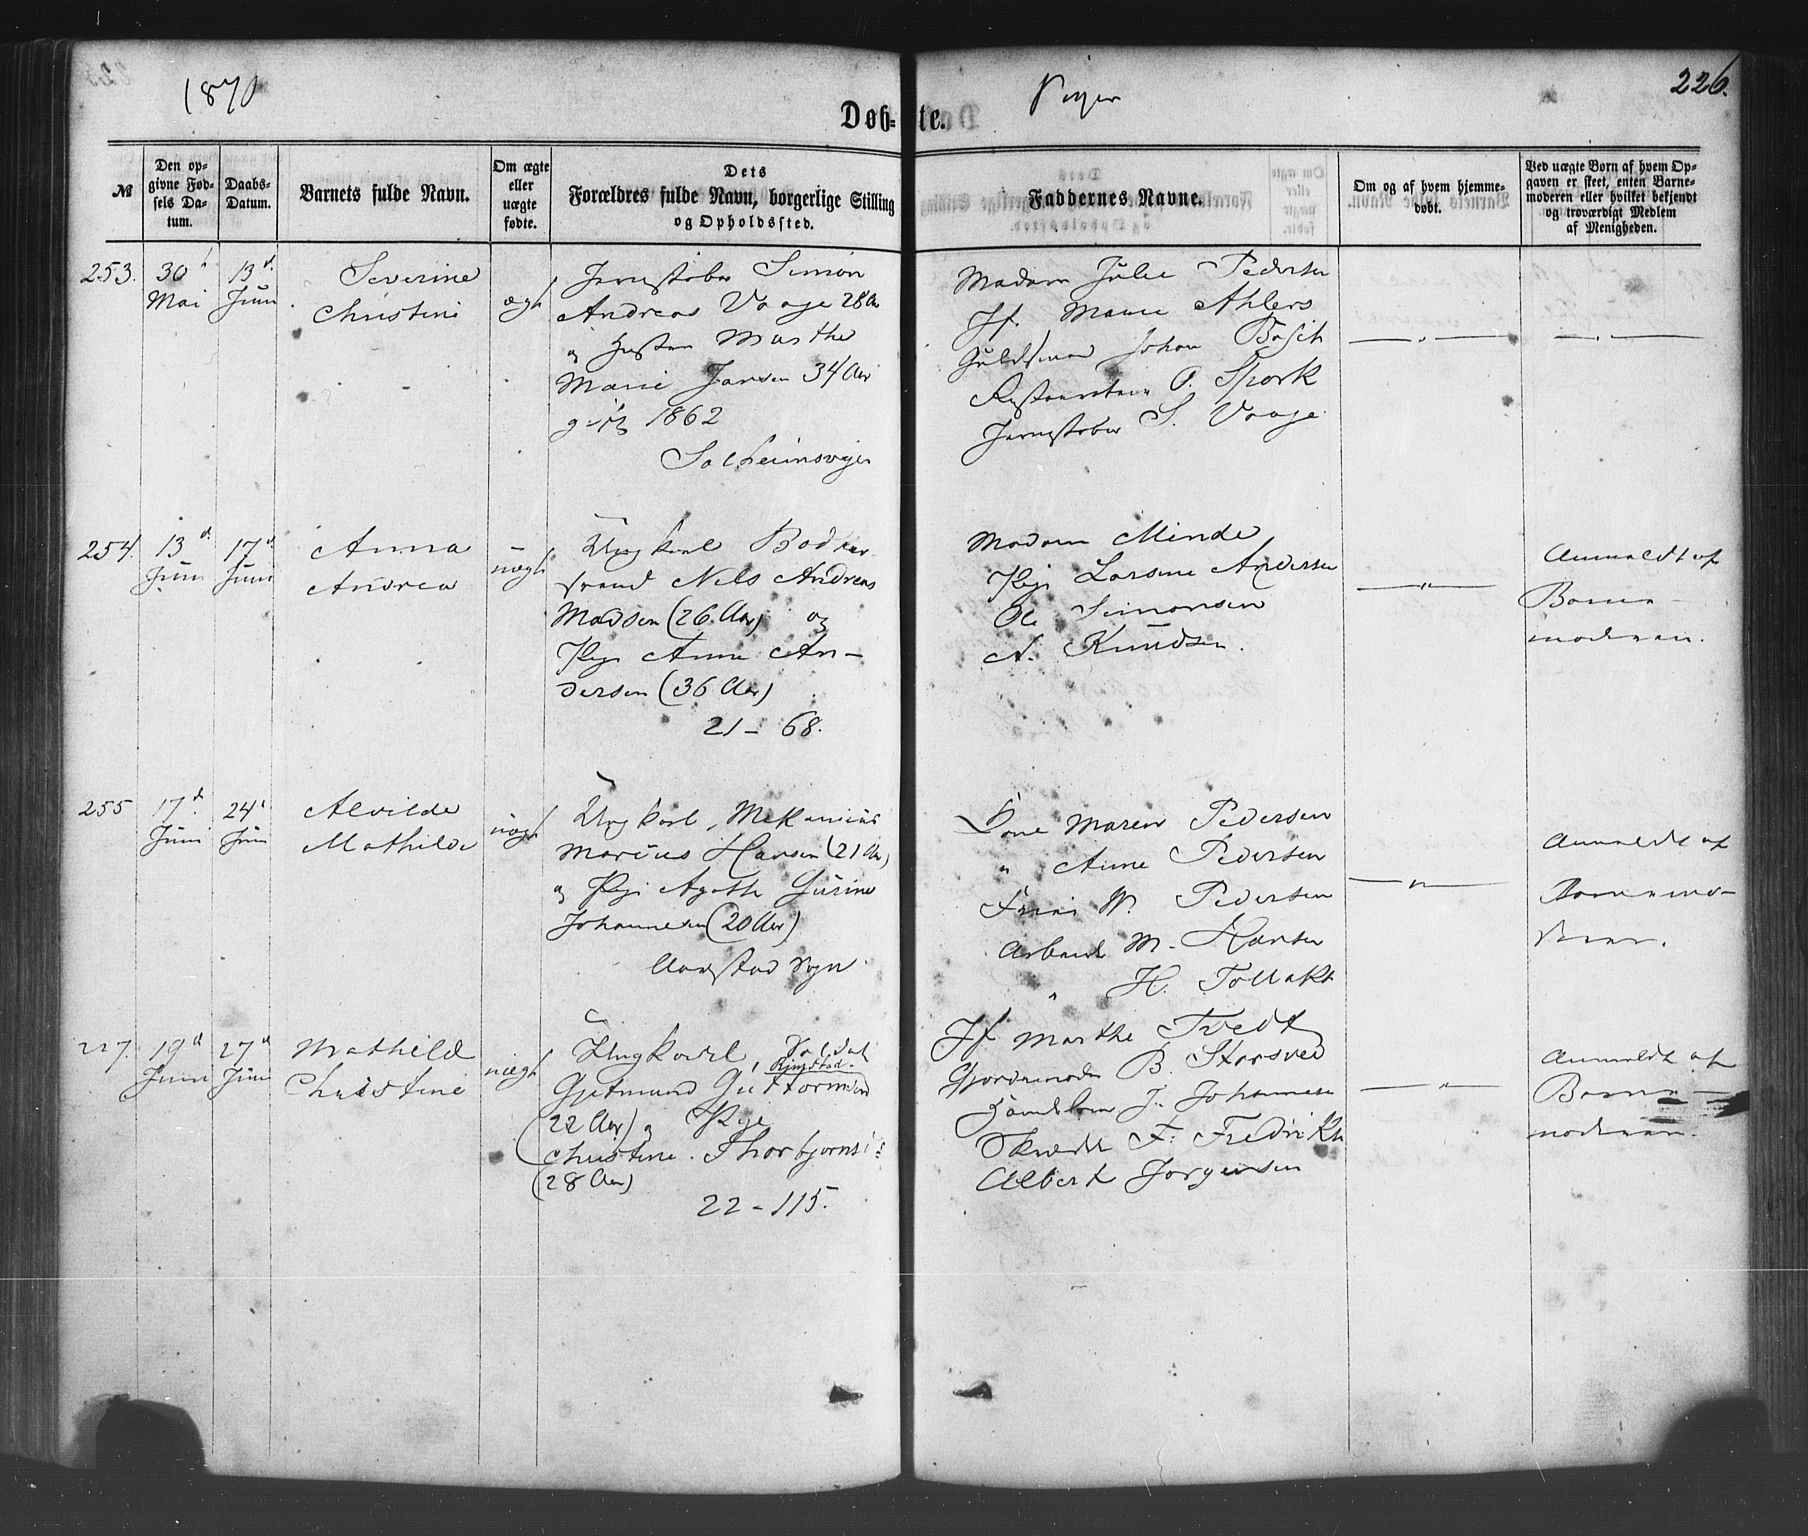 1870
Piger
226.
Døb-
te.
№
Den op-
givne Fød-
sels Da-
tum.
Daabs-
Datum.
Barnets fulde Navn.
Om ægte
eller
uægte
fødte.
Dets
Forældres fulde Navn, borgerlige Stilling
og Opholdssted.
Faddernes Navne.
Om og af hvem hjemme-
døbt.
Ved uægte Børn af hvem Op-
gaven er skeet, enten Barne-
moderen eller hvilket bekjendt
og troværdigt Medlem
af Menigheden.
253.
30
Mai
13d.
Juni
Severine
Christine
ægt
Jernstøber Simon
Andreas Vaage 28 Aar
og Hustru Marthe
Marie Jansen 34 Aar
gift 1862
Solheimsvigen
Madam Julie Pedersen
Jf. Marie Ahlers
Guldsmed Johan Bøsch
P. Spork
Jernstøber S. Vaage
254.
13d.
Juni
17d.
Juni
Anna
Andrea
uægt
Ungkarl
Nils Andreas
Madsen (26 Aar) og
Pige Anne An-
dersen (36 Aar)
21 - 68.
Madam Minde
Pige Larsine Andersen
Ole Simonsen
N. Knudsen.
Anmeldt af
Barne-
moderen.
255
17d.
Juni
24
Juni
Alvilde
Mathilde
uægt
Ungkarl, Mekanicus
Marius Hansen (21 Aar)
og Pige Agathe Gurine
Johannesen (20 Aar)
Aarstad Sogn
Kone Maren Pedersen
" Anne Pedersen
W. Pedersen
Arbeid. M. Hansen
" H.
Anmeldt af
Barnemo-
deren.
227.
19d
Juni
27d
Juni
Mathilde
Christine
uægt
Ungkarl, Soldat
Gjetmund Guttormsen
(22 Aar) og Pige
Christine Thorbjørns
(28 Aar)
22 - 115.
Jf Marthe Tvedt
Gjordemoder B. Storsved
J. Johannesen
F. Fredrik
Albert Jørgensen
Anmeldt af
Barne-
moderen.